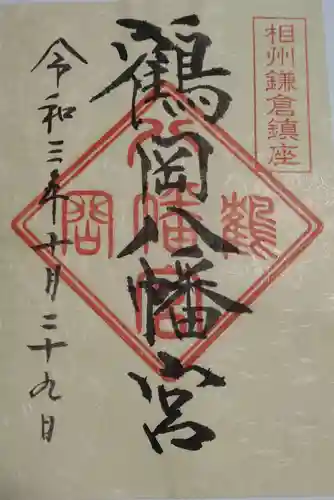 相州鎌倉鎮座
鶴岡八幡宮
鶴岡八幡宮
令和三年十月二十九日